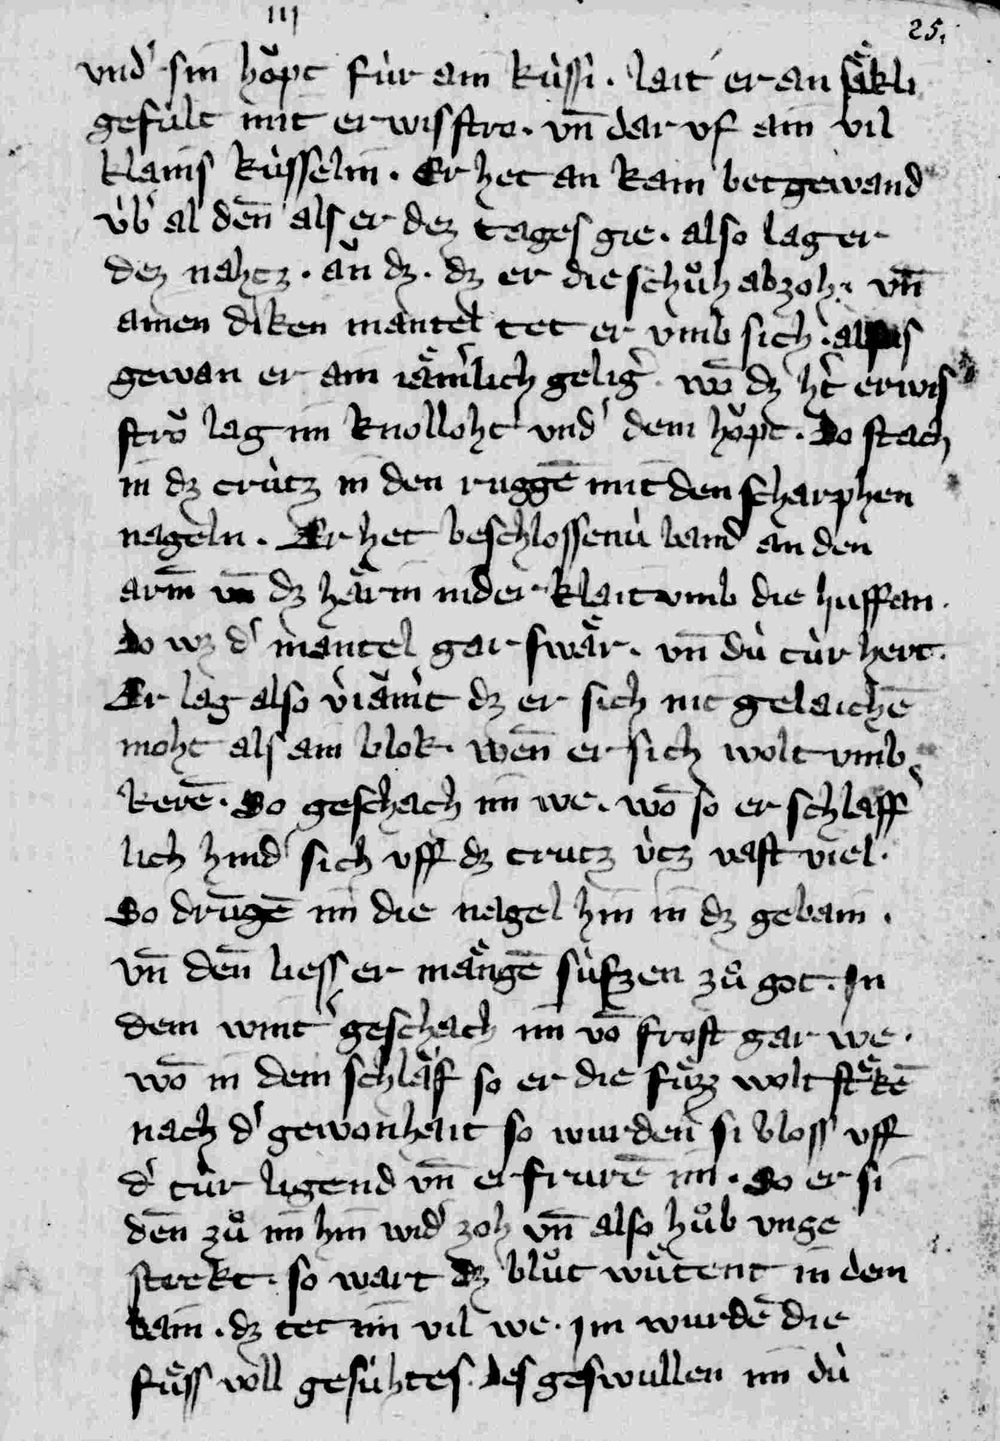 iij
25.
vnd' sin hoͮpt fúr ain kússi. lait er an saͤkli
gefúlt mit erwis stro. vn̄ dar vf ain vil
klains kússelin. Er het an kain betgewand
úb' al den̄ als er dez tages gie. also lag er
dez nahtz. an̆ dz. dz er die schuͦh abzoh. vn̄
ainen diken mantel tet er vmb sich. alsus
gewan er ain iaͤm'lich gelig'. wō dz h't erwis
strŏ lag im knolloht vnd' dem hoͮpt. Do stach
in dz crútz in den ruggē mit den scharphen
nageln. Er het beschlossenú band an den
arm̄ vn̄ dz haͤrin nider klait vmb die huffan.
do wz d' mantel gar swaͤr. vn̄ dú túr hert.
Er lag also v'iăm't dz er sich nit gelaichē
moht als ain blok. wen̄ er sich wolt vmb
kerē. So geschach im we. wō so er schlaff'
lich hind' sich vff dz crutz útz vast viel.
So drungē im die nagel hin in dz gebain.
vn̄ den̄ liess er maͤngē súfzen zuͦ got. In
dem wint' geschach im vō frost gar we.
wō in dem schlaͤf so er die fuͤzz wolt strekē
nach d' gewonhait so wurden si bloss vff
d' túr ligend vn̄ erfrurē im. So er si
den̄ zuͦ im hin wid' zoh vn̄ also huͦb vnge
strekt. so wart dz bluͦt wuͤtent in dem
bain. dz tet im vil we. Im wurdē die
fuͤss voll gesúhtes. des geswullen im dú